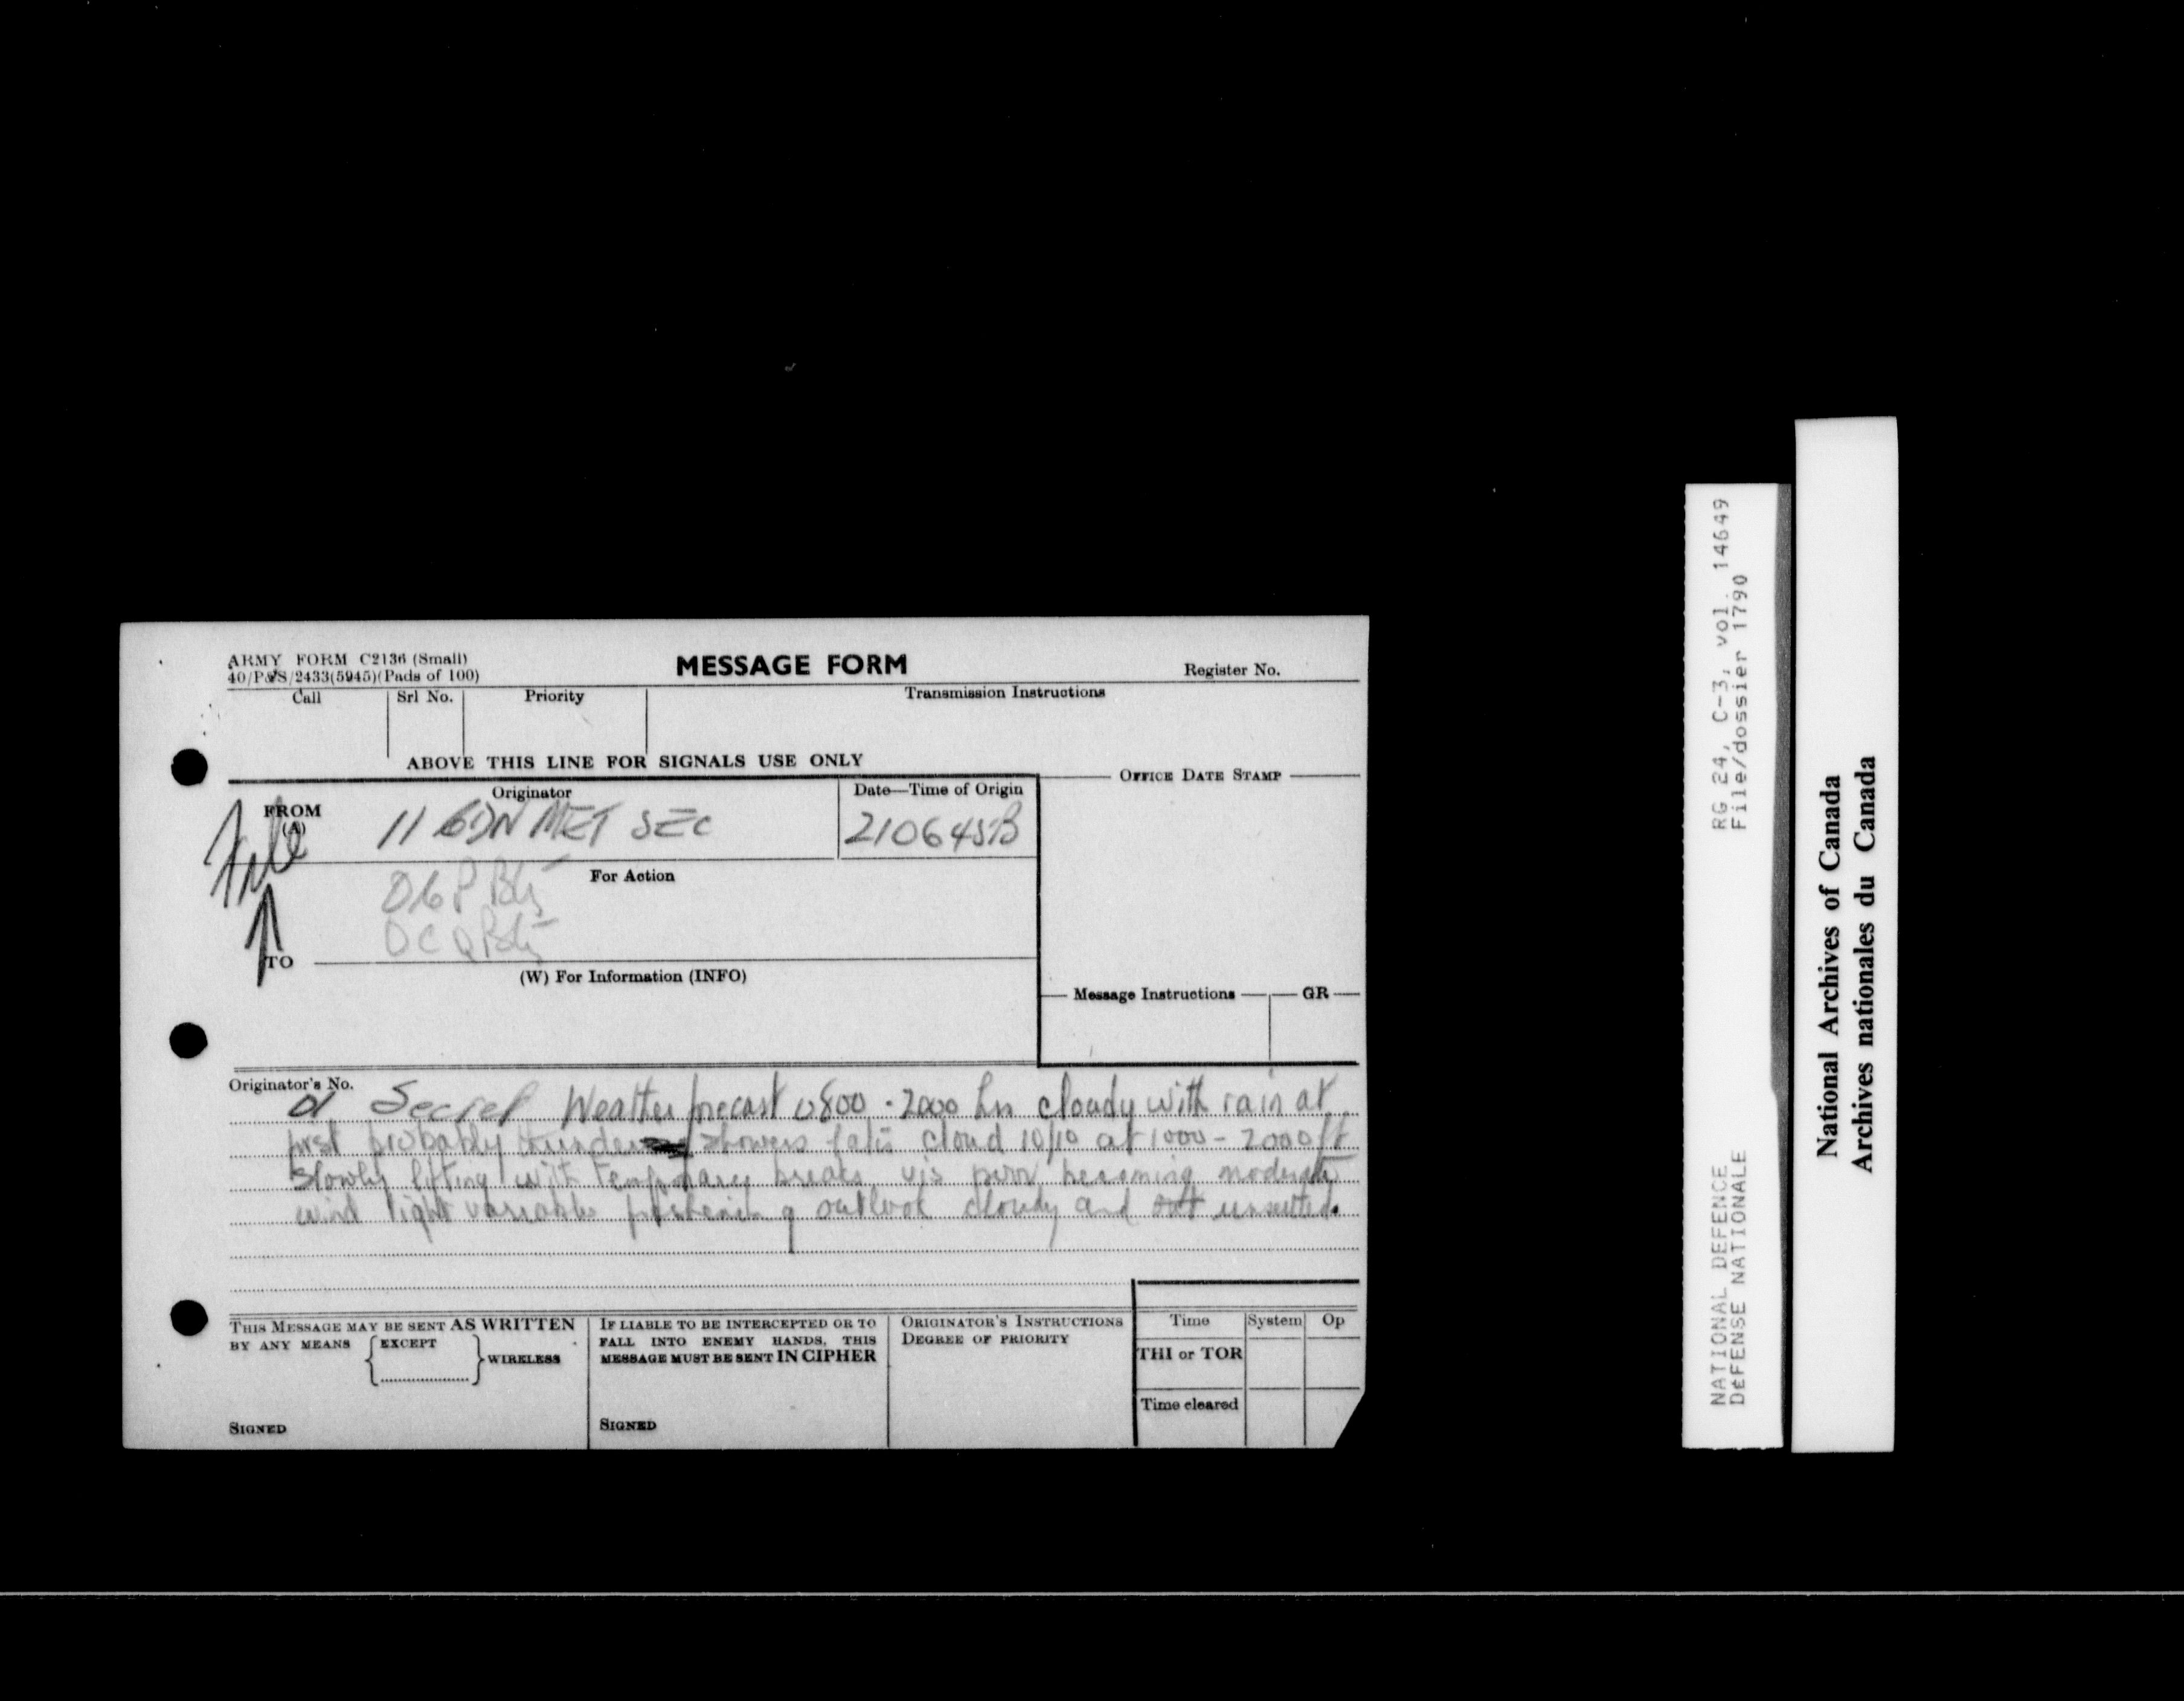 ARMY FORM C2136 (Small)
40/P&S/2433(5945)(Pads of 100)
MESSAGE FORM
Register No.
Call
Srl No.
Priority
Transmission Instructions
ABOVE THIS LINE FOR SIGNALS USE ONLY
OFFICE DATE STAMP
FROM
(A)
Originator
11 CDN MET SEC
Date—Time of Origin
210645B
File
For Action
P Bty
OC Q Bty
TO
(W) For Information (INFO)
Message Instructions
GR
Originator's No.
Secret Weather forecast 0800 - 2000 hrs cloudy with rain at
first probably thunder showers later cloud 10/10 at 1000 - 2000 ft
slowly lifting with temporary breaks vis poor becoming moderate
wind light variable freshening outlook cloudy and unsettled.
THIS MESSAGE MAY BE SENT AS WRITTEN
BY ANY MEANS
EXCEPT
WIRELESS
SIGNED
IF LIABLE TO BE INTERCEPTED OR TO
FALL INTO ENEMY HANDS, THIS
MESSAGE MUST BE SENT IN CIPHER
SIGNED
ORIGINATOR'S INSTRUCTIONS
DEGREE OF PRIORITY
Time
System
Op
THI or TOR
Time cleared
RG 24, C-3, vol. 14649
File/dossier 1790
NATIONAL DEFENCE
DéFENSE NATIONALE
National Archives of Canada
Archives nationales du Canada